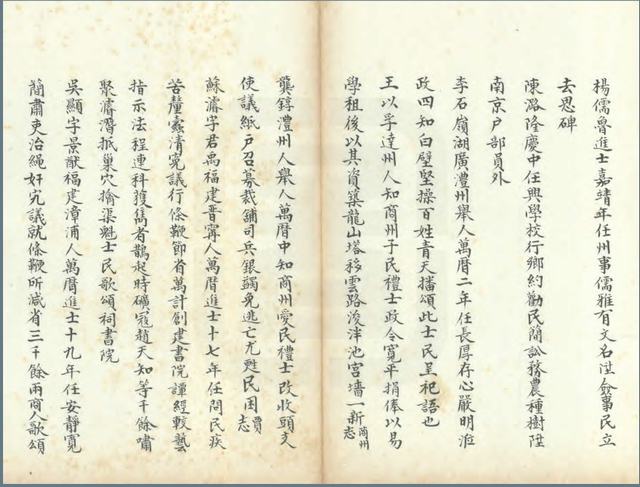 楊儒魯進士嘉靖年任州事儒雅有文名陞僉事民立
去思碑
陳潞隆慶中任興學校行鄉約勸民簡訟務農種樹陞
南京户部員外
李石嶺湖廣澧州舉人萬曆二年任長厚存心嚴明涖
政四知白璧堅操百姓青天播頌此士民呈祀語也
王以孚達州人知商州子民禮士政令寬平捐俸以易
學租後以其資築龍山塔移雲路浚泮池宫墻一新商州志
龔錞澧州人舉人萬曆中知商州愛民禮士改收頭支
使議紙户召募裁鋪司兵銀蠲免逃亡尤甦民困賈志
蘇濬字君禹福建晋寗人萬曆進士十七年任問民疾
苦釐蠹清寃議行條鞭節省萬計創建書院譚經較藝
指示法程連科獲雋者鵲起時礦寇趙天知等千餘嘯
聚濬潛抵巢穴擒渠魁士民歌頌祠書院
吳顯字景猷福建漳浦人萬曆進士十九年任安靜寬
簡肅吏治繩奸宄議就條鞭所减省三千餘兩商人歌頌